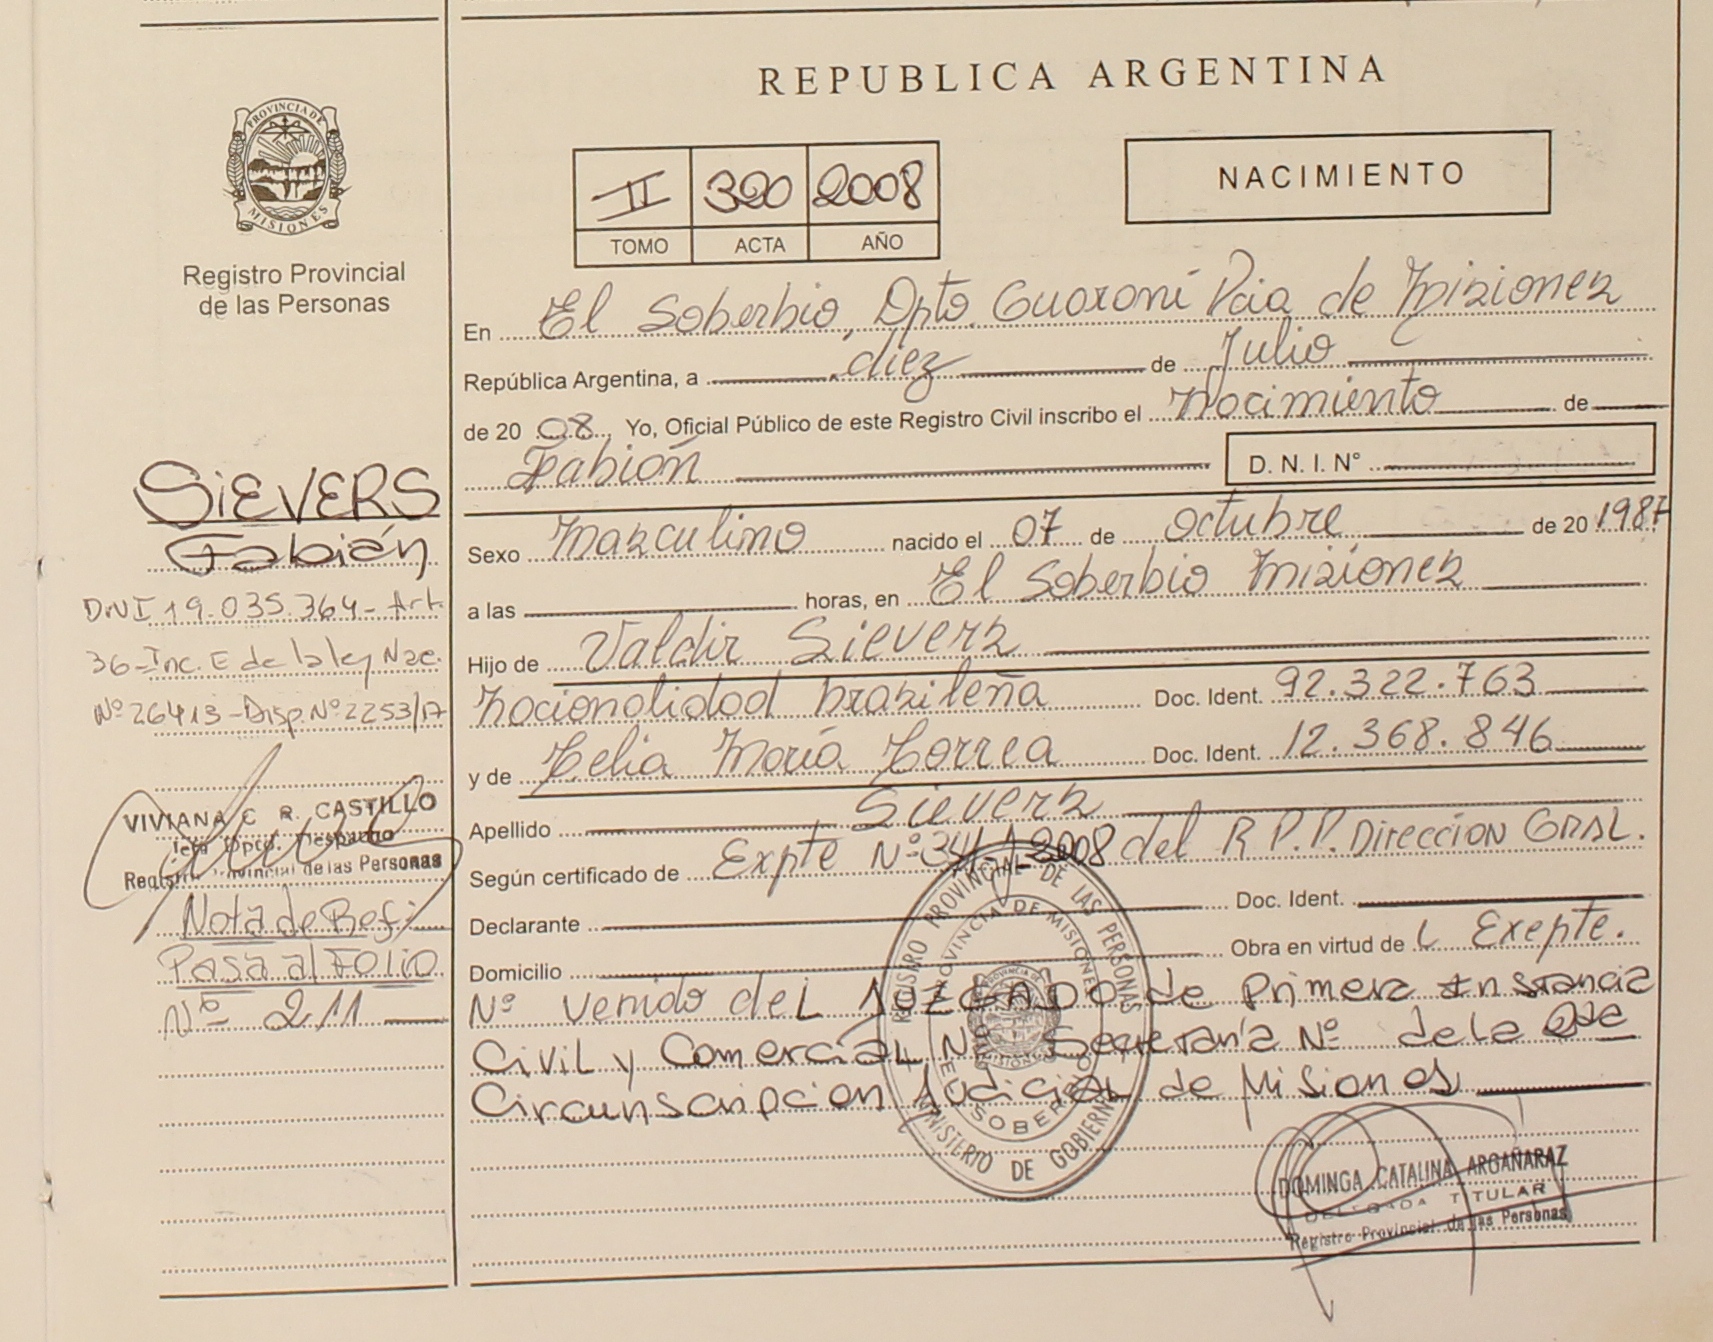 PROVINCIA DE
MISIONES
Registro Provincial
de las Personas
SIEVERS
Fabián
DNI 19.035.364 - Art.
36 - Inc. E de la ley Nac.
Nº 26413 - Disp. Nº 2253/17
VIVIANA C R. CASTILLO
Jefa Dpto. Despacho
Registro Provincial de las Personas
Nota de Ref:
Pasa al FOLIO
Nº 211
REPUBLICA ARGENTINA
II 320 2008
TOMO ACTA AÑO
NACIMIENTO
En El Soberbio, Dpto. Guaraní Pcia de Misiones
República Argentina, a diez de Julio
de 20 08 Yo, Oficial Público de este Registro Civil inscribo el Nacimiento de
Fabián D. N. I. Nº
Sexo Masculino nacido el 07 de octubre de 20 1987
a las horas, en El Soberbio Misiones
Hijo de Valdir Sievers
nacionalidad brasileña Doc. Ident. 92.322.763
y de Celia María Correa Doc. Ident. 12.368.846
Apellido Sievers
Según certificado de Expte Nº 341-2008 del R.P.P. Dirección GRAL.
Declarante Doc. Ident.
Domicilio Obra en virtud de L Exepte.
Nº venido del JUZGADO de Primera Instancia
Civil y Comercial Nº Secretaría Nº de la 2da
Circunscripcion Judicial de Misiones
REGISTRO PROVINCIAL DE LAS PERSONAS
PROVINCIA DE MISIONES
EL SOBERBIO
MINISTERIO DE GOBIERNO
DOMINGA CATALINA ARGAÑARAZ
DELEGADA TITULAR
Registro Provincial de las Personas